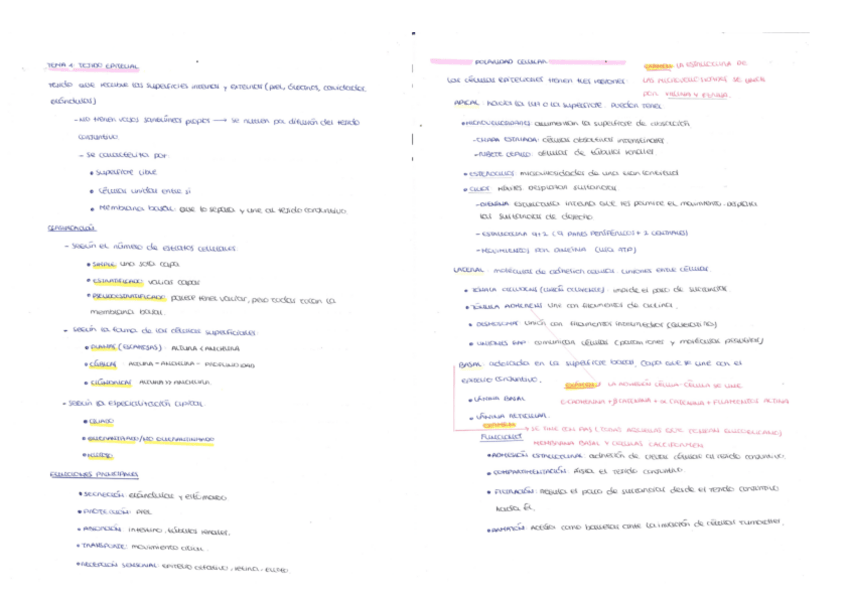 TEMA 1: TEJIDO EPITELIAL
Tejido que recubre las superficies internas y externas (piel, órganos, cavidades,
glándulas)
- NO tienen vasos sanguíneos propios → se nutren por difusión del tejido
conjuntivo.
- Se caracteriza por:
• Superficie libre
• Células unidas entre sí
• Membrana basal: que lo separa y une al tejido conjuntivo.
CLASIFICACIÓN
- Según el número de estratos celulares:
• SIMPLE: una sola capa.
• ESTRATIFICADO: varias capas
• PSEUDOESTRATIFICADO: parece tener varias, pero todas tocan la
membrana basal.
- Según la forma de las células superficiales:
• PLANAS (ESCAMOSAS): ALTURA < ANCHURA
• CÚBICAS: ALTURA = ANCHURA = PROFUNDIDAD
• CILÍNDRICAS: ALTURA > ANCHURA.
- Según la especialización
• CILIADO
• QUERATINIZADO/NO QUERATINIZADO
FUNCIONES PRINCIPALES
• SECRECIÓN: glándulas y estómago.
• PROTECCIÓN: PIEL
• ABSORCIÓN: intestino, túbulos renales.
• TRANSPORTE: movimiento ciliar.
• RECEPCIÓN SENSORIAL: epitelio olfativo, retina,
POLARIDAD CELULAR
Las células epiteliales tienen tres regiones:
APICAL: hacia la luz o la superficie. Pueden tener
• MICROVELLOSIDADES: aumentan la superficie de absorción
- CHAPA ESTRIADA: células absortivas intestinales.
- RIBETE CEPILLO: células de túbulos renales.
• ESTEREOCILIOS: microvellosidades de una gran longitud
• CILIOS: móviles desplazan sustancias
- AXONEMA: estructura interna que les permite el movimiento: desplaza
las sustancias de dentro
- ESTRUCTURA 9+2 (9 PARES PERIFÉRICOS + 2 CENTRALES)
- MOVIMIENTO: con dineína (usa ATP)
EXAMEN: LA ESTRUCTURA DE
LAS MICROVELLOSIDADES SE BASEN
POR VILLINA Y FIMBRINA.
LATERAL: moléculas de adhesión celular. Uniones entre células.
• ZONULA OCLUDENS (UNIÓN OCLUYENTE): impide el paso de sustancias.
• ZÓNULA ADHERENS: une con filamentos de actina.
• DESMOSOMAS: unión con filamentos intermedios (queratina)
• UNIONES GAP: comunican células (pasan iones y moléculas pequeñas)
BASAL: adherida en la superficie basal, capa que se une con el
epitelio conjuntivo.
EXAMEN: LA ADHESIÓN CÉLULA-CÉLULA SE UNE
E-CADHERINA + β CATENINA + α CATENINA + FILAMENTOS ACTINA
• LÁMINA BASAL
• LÁMINA RETICULAR.
EXAMEN
→ SE TIÑE CON PAS (TODAS AQUELLAS QUE PORTAN GLUCOPROTEÍNAS)
MEMBRANA BASAL Y CÉLULAS CALICIFORMES
FUNCIONES
• ADHESIÓN ESTRUCTURAL: adhesión de células al tejido conjuntivo.
• COMPARTIMENTACIÓN: separa el tejido conjuntivo.
• FILTRACIÓN: regula el paso de sustancias desde el tejido conjuntivo
hacia él.
actúa como barrera ante la invasión de células tumorales.